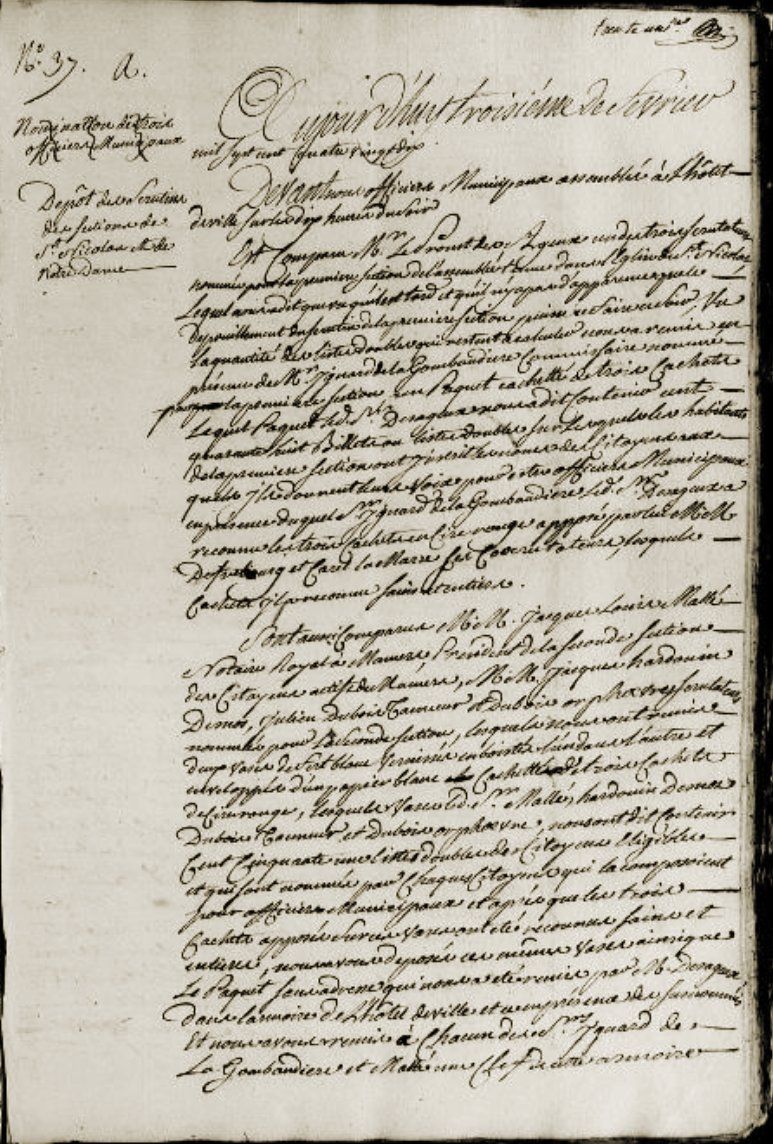 trente un.e
N.o 37. A.
Nomination de trois
officiers Municipaux
Depôt des Scrutins
des sections de
S.t Nicolas et de
Notre Dame
Aujourd'huy troisiéme de Fevrier
mil sept cent quatre vingt dix
Devant nous officiers Municipaux assemblés à L'hôtel
de ville sur les dix heures du Soir
Est Comparu M.r Le Proust des Ageux un des trois scrutateurs
nommés pour la premiere section de l'assemblée tenue dans l'Eglise de S.t Nicolas
Lequel nous a dit que vu qu'il est tard et qu'il n'y a pas d'apparence que le
Depouillement du scrutin de la premiere section puisse se faire ce soir, Vu
la quantité des listes doubles qui restent à calculer nous a remis en
présence de M.r Ysnard de la Gombaudiere Commissaire nommé
par la premiere section un Paquet cacheté de trois Cachets
Lequel Paquet led. S.r Desageux nous a dit Contenir cent
quarante huit Billets ou listes doubles sur lesquelles les habitants
de la premiere section ont inscrit les noms des Citoyens aux
quels ils donnent leurs Voix pour être officiers Municipaux
en présence duquel S.r Ysnard de la Gombaudiere led. S.r Desageux a
reconnu les trois Cachets en Cire rouge apposés par lui M.M.
et Caret la Marre ses Coscrutateurs, lesquels
Cachets il a reconnu sains et entiers.
Sont aussi Comparus M.M. Jacques Louis Mallé
Notaire Royal à Mamers President de la seconde section
des Citoyens actifs de Mamers, M.M. Jacques hardouin
Desnos, Julien Dubois Tanneur et Dubois orphevre scrutateurs
nommés pour la seconde section, lesquels nous ont remis
deux vases de fert blanc Vernissés emboistés l'un dans l'autre et
enveloppés d'un papier blanc Cacheté de trois Cachets
de Cire rouge, lesquels Vases led. S.r Mallé, hardouin Desnos
Dubois Tanneur et Dubois orphevre, nous ont dit Contenir
Cent Cinquante une listes doubles de Citoyens Eligibles
et qui sont nommés par Chaque Citoyens qui la composoient
pour officiers Municipaux et après que les trois
Cachets apposés sur ces Vases ont été reconnus sains et
entiers, nous avons deposé ces mêmes Vases ainsi que
Le Paquet sous adresse qui nous a été remis par M. Desageux
dans l'armoire de L'hôtel de ville et en présence des susnommés
Et nous avons remis à Chacun des S.rs Ysnard de
La Gombaudiere et Mallé une Clef de cette armoire